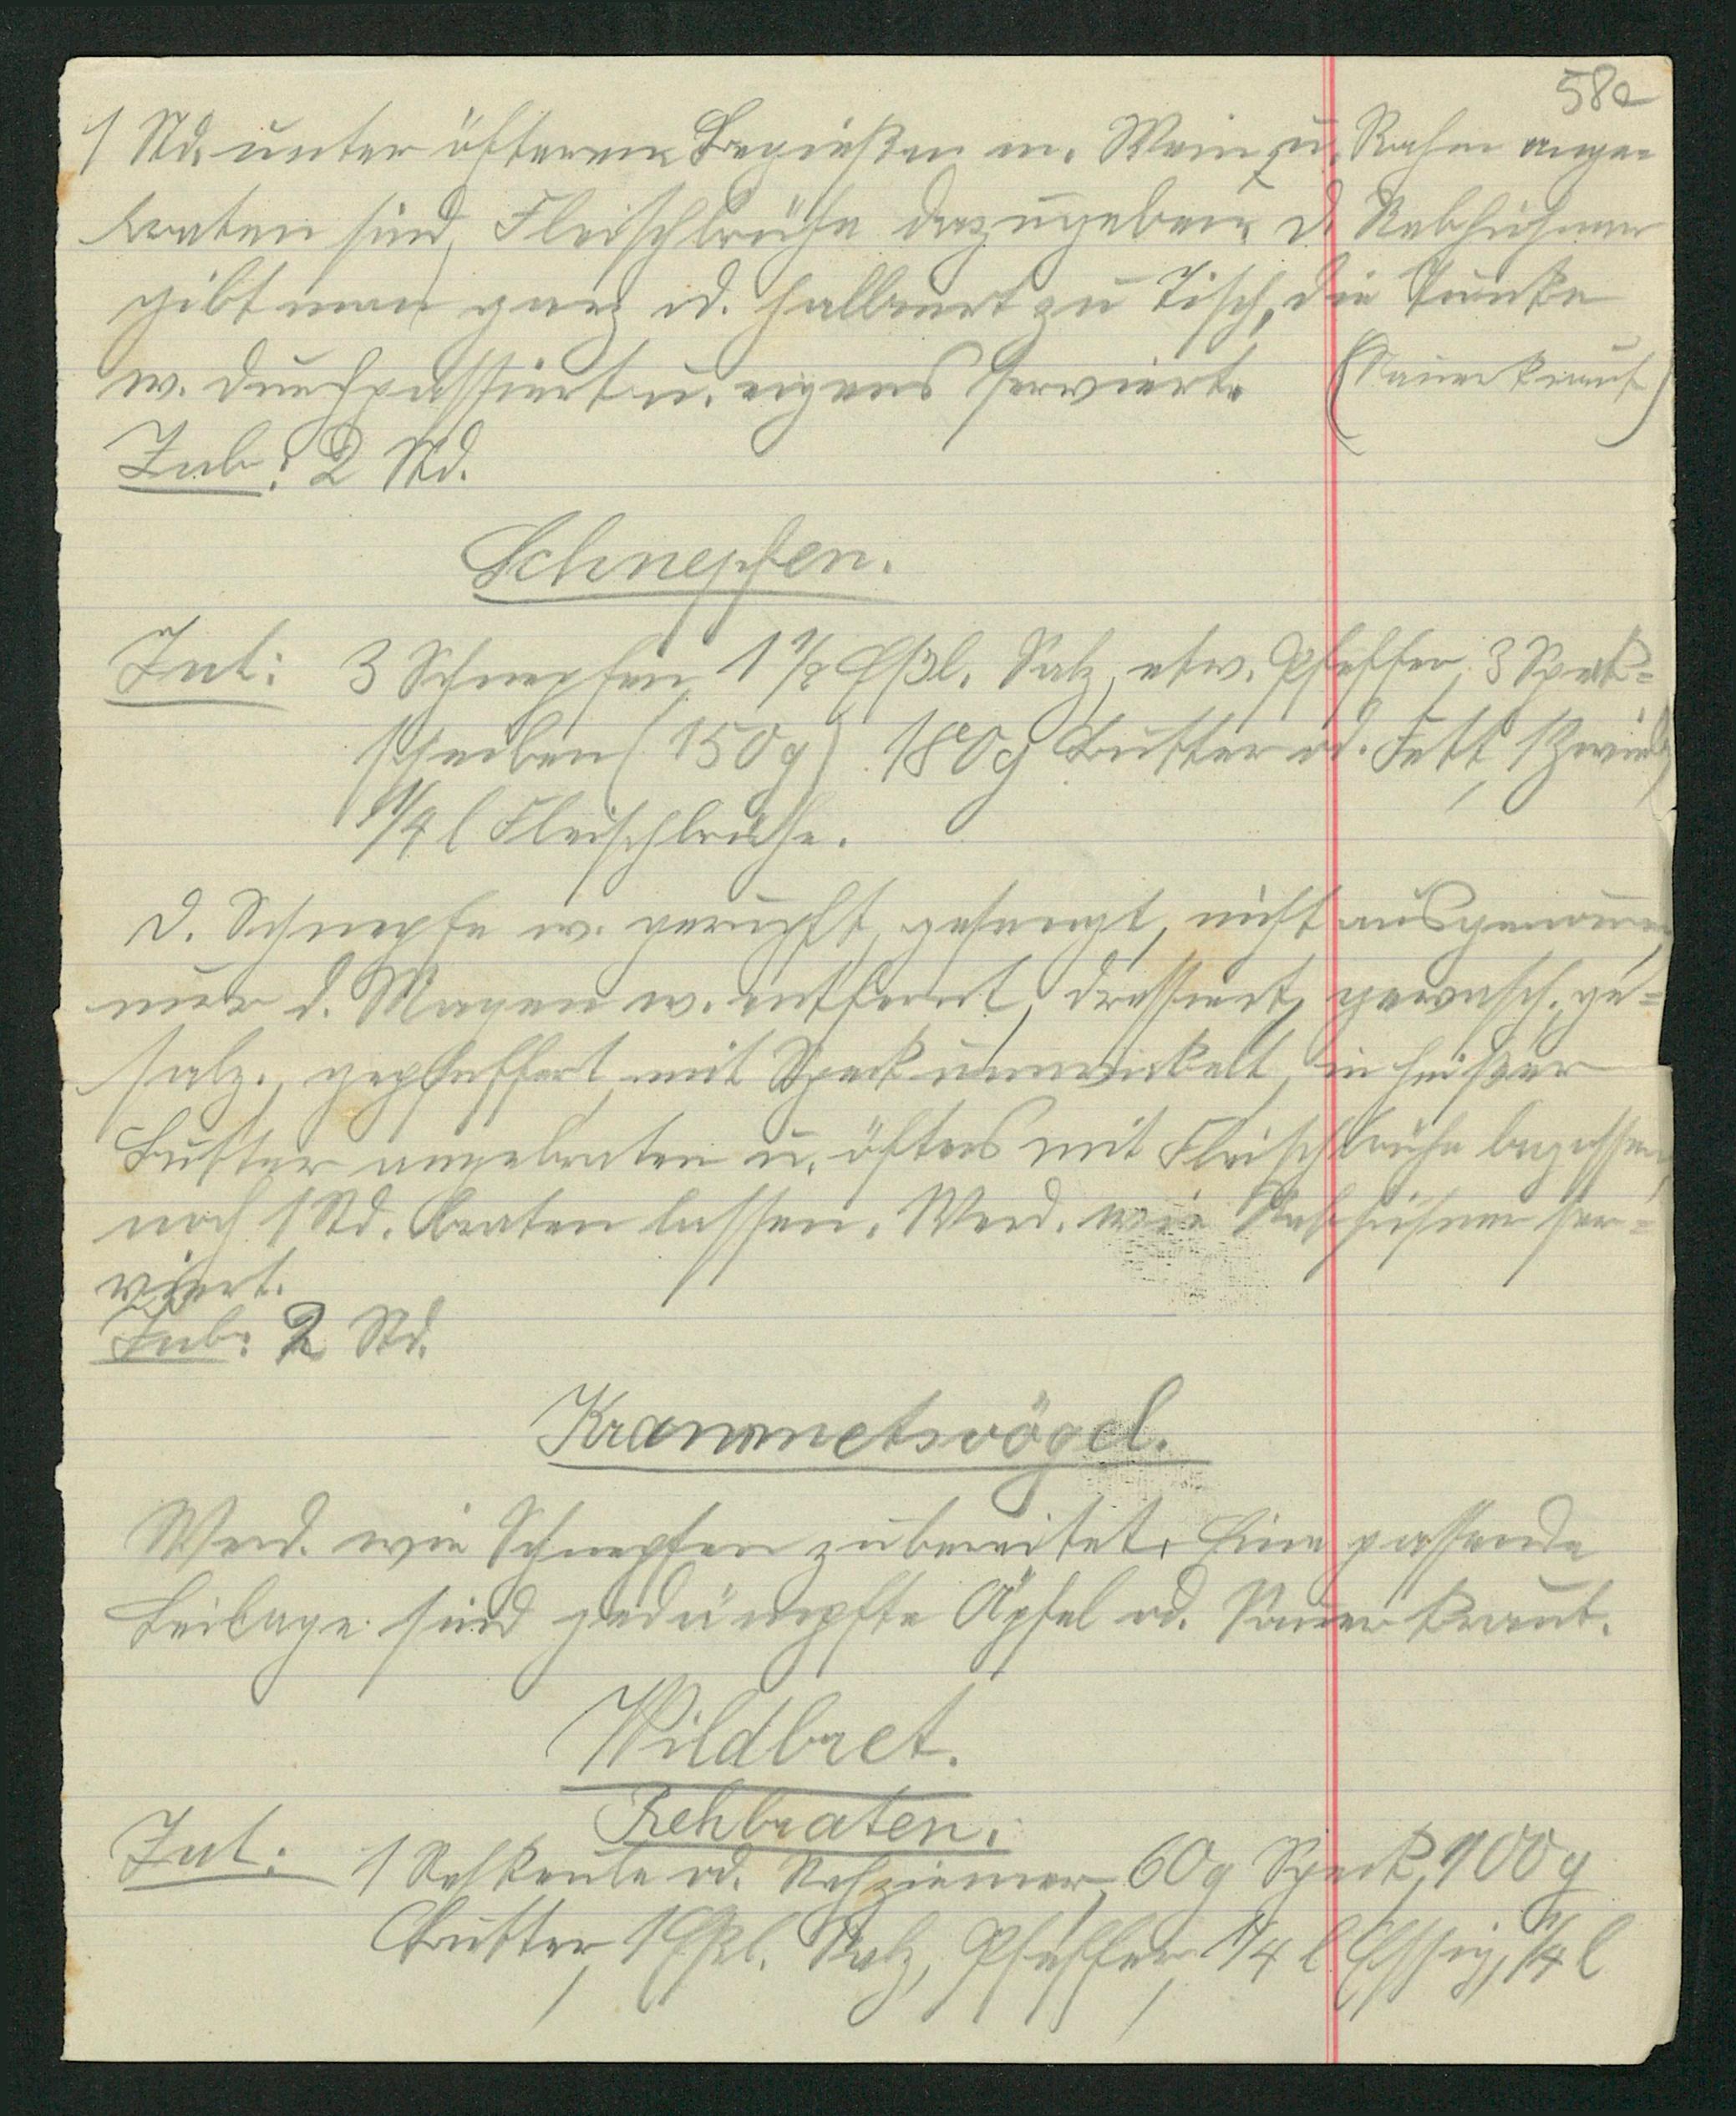 58a
1 Std. unter öfterem Begießen m. Wein u. Rahm ange-
braten sind, Fleischbrühe dazugeben. D. Rebhühner
gibt man ganz od. halbiert zu Tisch, die Tunke
w. durchpassiert u. eigens serviert. (Sauerkraut)
Zub: 2 Std.
Schnepfen.
Zut: 3 Schnepfen, 1 1/2 Eßl. Salz, etw. Pfeffer, 3 Speck-
scheiben (150 g) 180 g Butter od. Fett, 1 Zwieb,
1/4 l Fleischbrühe.
D. Schnepfe w. gerupft, gesengt, nicht ausgenommen,
nur d. Magen w. entfernt, dressiert, gewasch., ge-
salz., gepfeffert, mit Speck umwickelt, in heißer
Butter angebraten u. öfters mit Fleischbrühe begossen,
noch 1 Std. braten lassen. Werd. wie Rebhühner ser-
viert.
Zub: 2 Std.
Krammetsvögel.
Werd. wie Schnepfen zubereitet. Eine passende
Beilage sind gedämpfte Äpfel od. Sauerkraut.
Wildbret.
Rehbraten.
Zut: 1 Rehkeule od. Rehziemer, 60 g Speck, 100 g
Butter, 1 Eßl. Salz, Pfeffer, 1/4 l Essig, 1/4 l